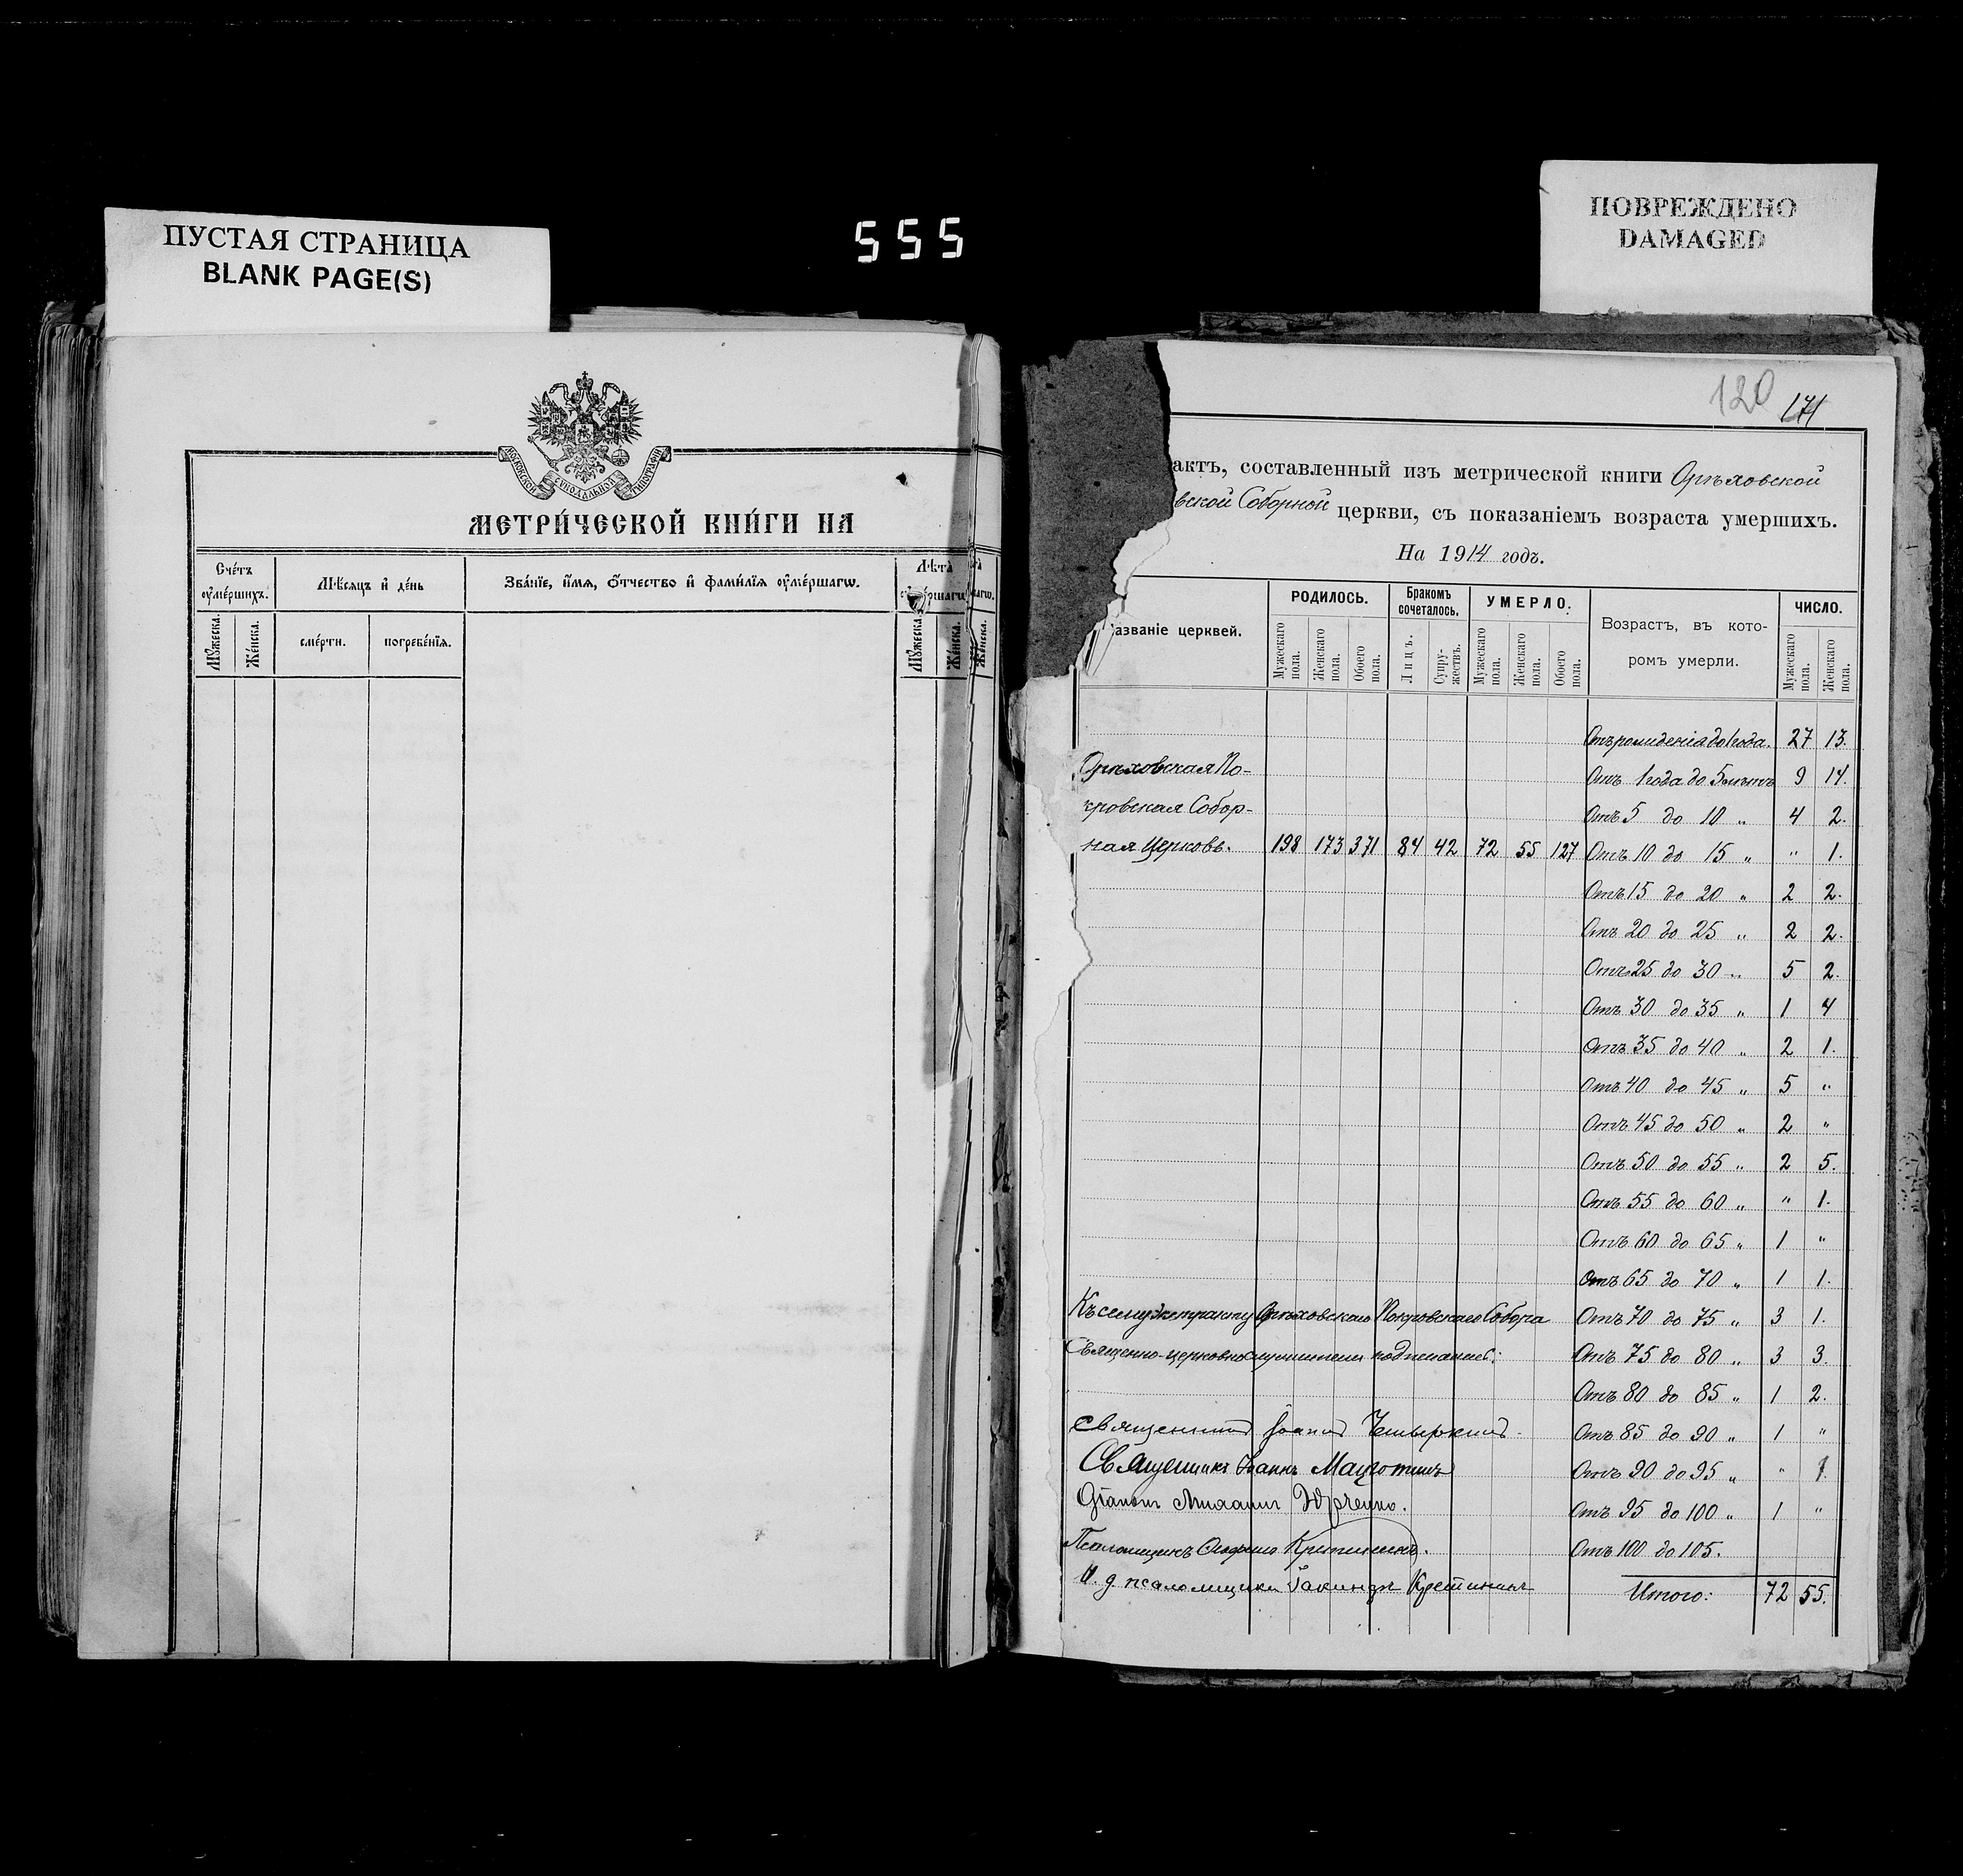 ПУСТАЯ СТРАНИЦА
BLANK PAGE(S)
555
ПОВРЕЖДЕНО
DAMAGED
МОСКОВСКОЙ СѴНОДАЛЬНОЙ ТИПОГРАФІИ
МЕТРИ́ЧЕСКОЙ КНИ́ГИ НА
Сче́тъ ᲂумéршихъ.
Мѣ́сяцъ и҆ де́нь
Зва́нїе, и҆́мя, ѻ҆́тчество и҆ фами́лїя ᲂумéршагѡ.
Лѣта̀
Мꙋ́жеска.
Же́нска.
сме́рти.
погребе́нїя.
Мꙋ́жеска.
Же́нска.
Же́нска.
120
171
актъ, составленный изъ метрической книги Орѣховской
вской Соборной церкви, съ показаніемъ возраста умершихъ.
На 1914 годъ.
азваніе церквей.
РОДИЛОСЬ.
Мужескаго пола.
Женскаго пола.
Обоего пола.
Бракомъ сочеталось.
Лицъ.
Супружествъ.
УМЕРЛО.
Мужескаго пола.
Женскаго пола.
Обоего пола.
Возрастъ, въ кото-
ромъ умерли.
ЧИСЛО.
Мужескаго пола.
Женскаго пола.
Отъ рожденія до 1 года. 27 13.
Орѣховская По- Отъ 1 года до 5 лѣтъ 9 14.
кровская Собор- Отъ 5 до 10 „ 4 2.
ная Церковь. 198 173 371 84 42 72 55 127 Отъ 10 до 15 „ „ 1.
Отъ 15 до 20 „ 2 2.
Отъ 20 до 25 „ 2 2.
Отъ 25 до 30 „ 5 2.
Отъ 30 до 35 „ 1 4
Отъ 35 до 40 „ 2 1.
Отъ 40 до 45 „ 5 „
Отъ 45 до 50 „ 2 „
Отъ 50 до 55 „ 2 5.
Отъ 55 до 60 „ „ 1.
Отъ 60 до 65 „ 1 „
Отъ 65 до 70 „ 1 1.
Къ сему экстракту Орѣховскаго Покровскаго Собора Отъ 70 до 75 „ 3 1.
Священно-церковнослужители подписались: Отъ 75 до 80 „ 3 3.
Отъ 80 до 85 „ 1 2.
Священникъ Іоаннъ Отъ 85 до 90 „ 1 „
Священникъ Іоаннъ Отъ 90 до 95 „ „ 1
Діаконъ Михаилъ Юрченко. Отъ 95 до 100 „ 1 „
Псаломщикъ Отъ 100 до 105.
И. д. псаломщика Іакинфъ Крестининъ Итого: 72 55.